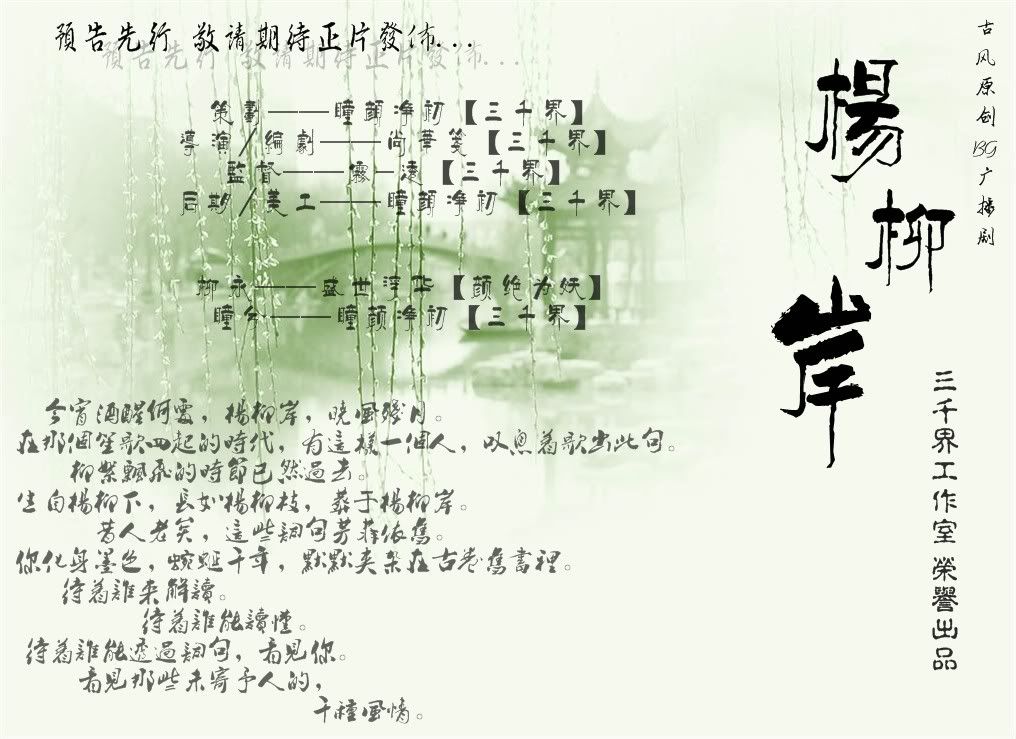 預告先行 敬請期待正片發佈...
預告先行 敬請期待正片發佈...
古风原创BG广播剧
楊柳岸
三千界工作室 榮譽出品
策劃——瞳顏淨初【三千界】
導演/編劇——尚華箋【三千界】
監督——霧一遠【三千界】
后期/美工——瞳顏淨初【三千界】
柳永——盛世浮华【颜绝为妖】
瞳兮——瞳顏淨初【三千界】
今宵酒醒何處，楊柳岸，曉風殘月。
在那個笙歌四起的時代，有這樣一個人，叹息着歌出此句。
柳絮飄飛的時節已然過去。
生自楊柳下，長如楊柳枝，葬于楊柳岸。
昔人老矣，這些詞句芳菲依舊。
你化身墨色，蜿蜒千年，默默夾杂在古卷舊書裡。
待着誰来解讀。
待着誰能讀懂。
待着誰能透過詞句，看見你。
看見那些未寄予人的，
千種風情。